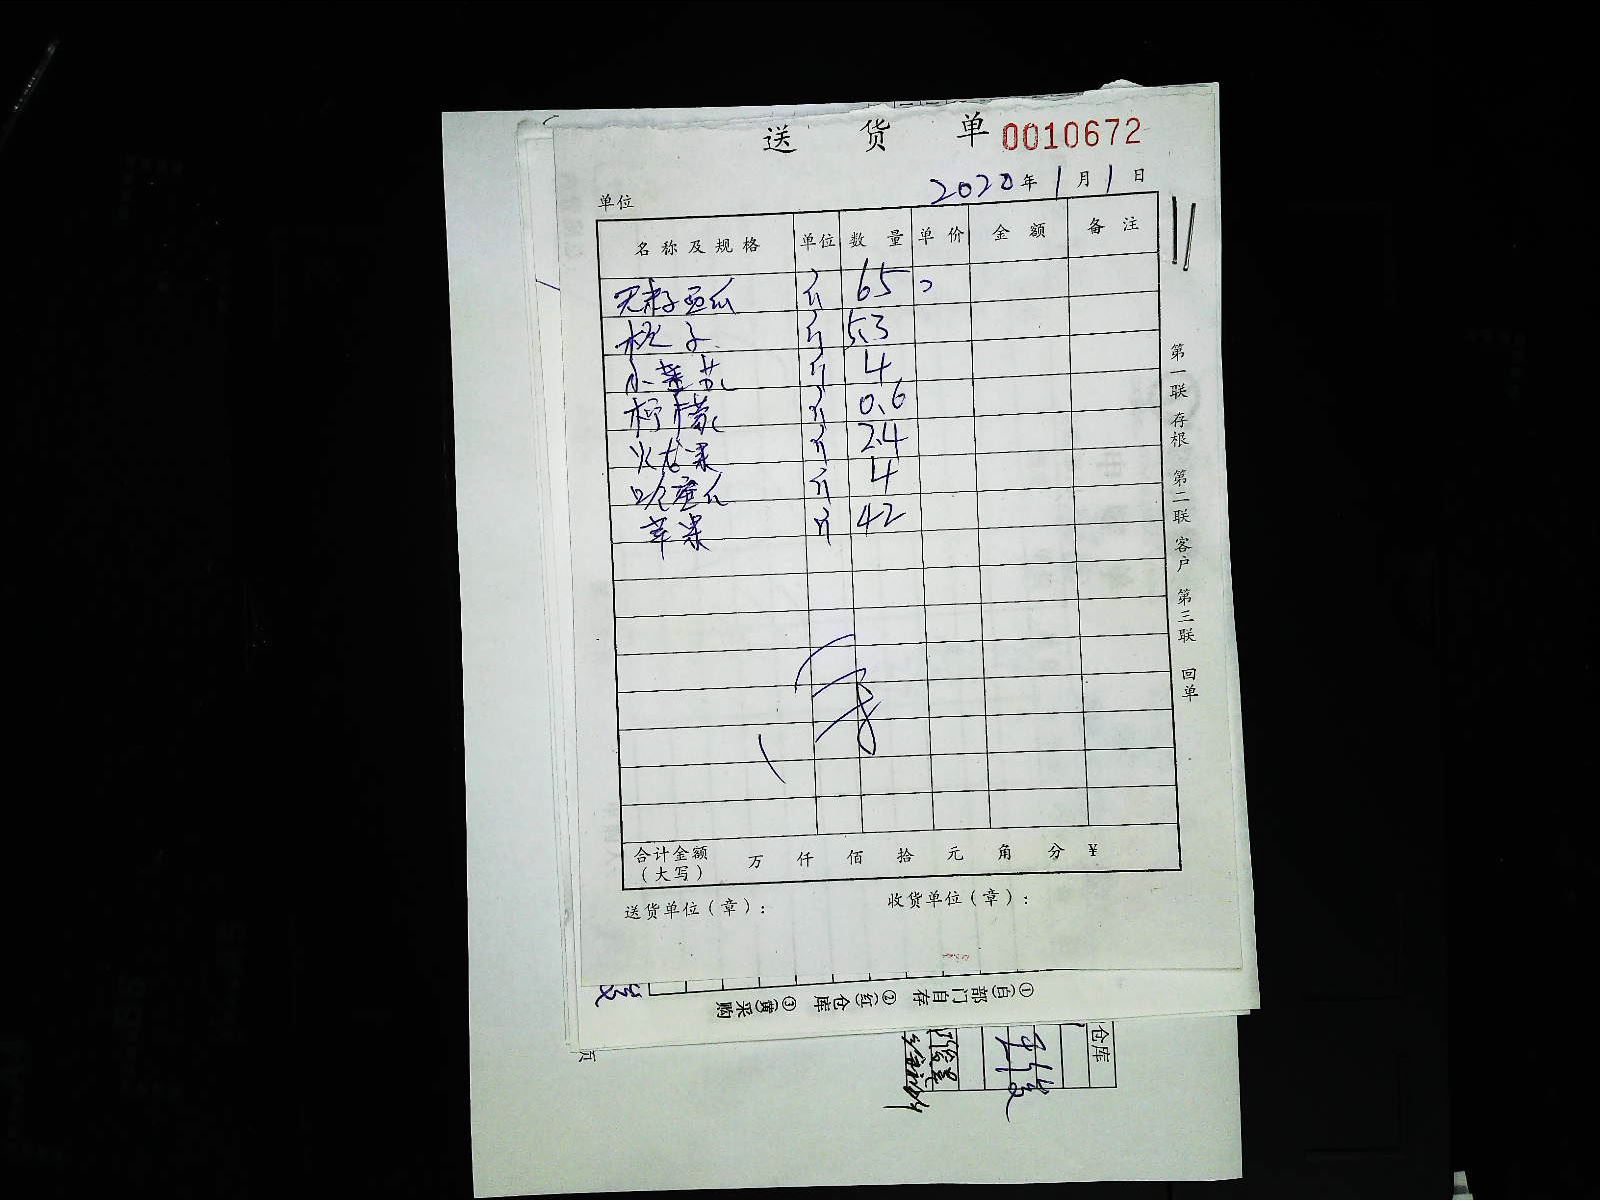 送 货 单 0010672
2020年1月1日
单位
名称及规格 单位 数量 单价 金额 备注
无籽西瓜 斤 65
橙子 斤 5.3
小番茄 斤 4
柠檬 斤 0.6
火龙果 斤 2.4
哈蜜瓜 斤 4
苹果 斤 42
合计金额 万 仟 佰 拾 元 角 分 ¥
(大写)
送货单位(章): 收货单位(章):
第一联 存根 第二联 客户 第三联 回单
①(白)部门自存 ②(红)仓库 ③(黄)采购
仓库
页